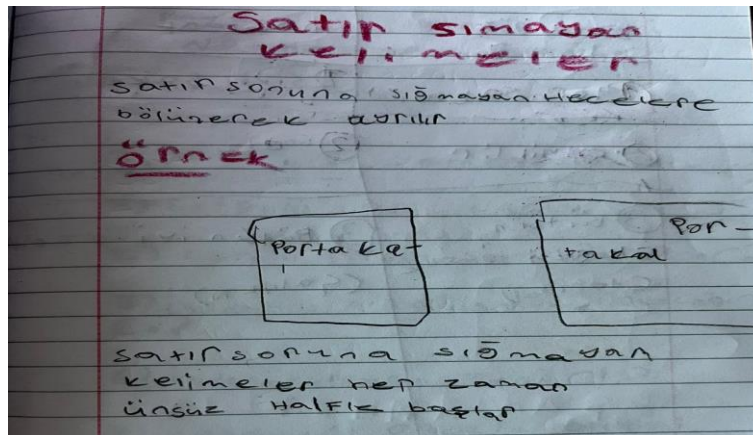 Satır sımayan
kelimeler
satır sonuna sığmayan Hecelere
bölünerek ayrılır
örnek
Portaka-
l
Por-
takal
satır sonuna sığmayan
kelimeler her zaman
ünsüz Halfle başlar